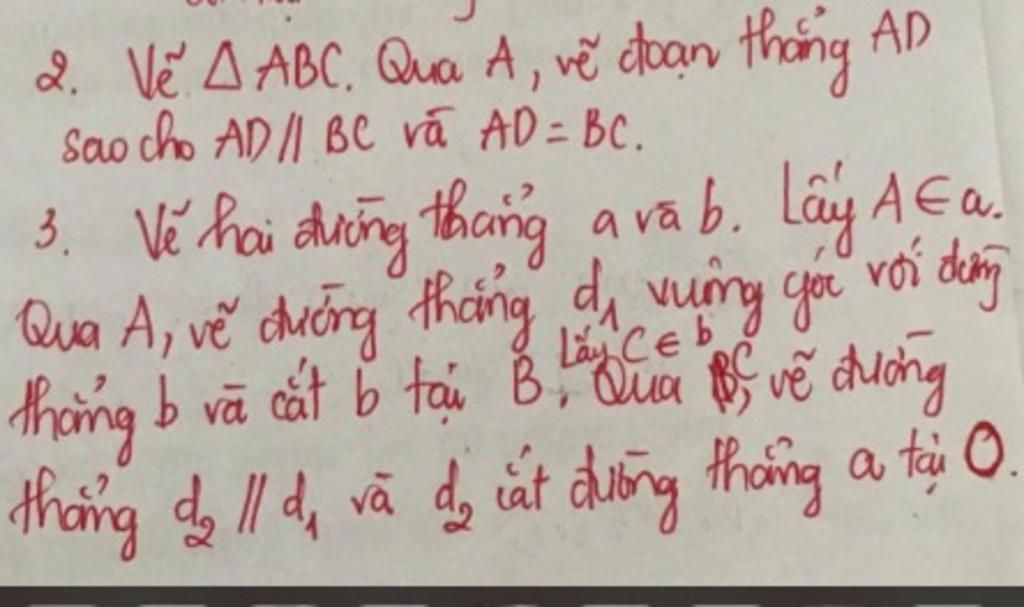 2. Vẽ △ ABC. Qua A, vẽ đoạn thẳng AD
sao cho AD // BC và AD = BC.
3. Vẽ hai đường thẳng a và b. Lấy A ∈ a.
Qua A, vẽ đường thẳng d₁ vuông góc với đường
thẳng b và cắt b tại B. Lấy C ∈ b. Qua C, vẽ đường
thẳng d₂ // d₁ và d₂ cắt đường thẳng a tại O.